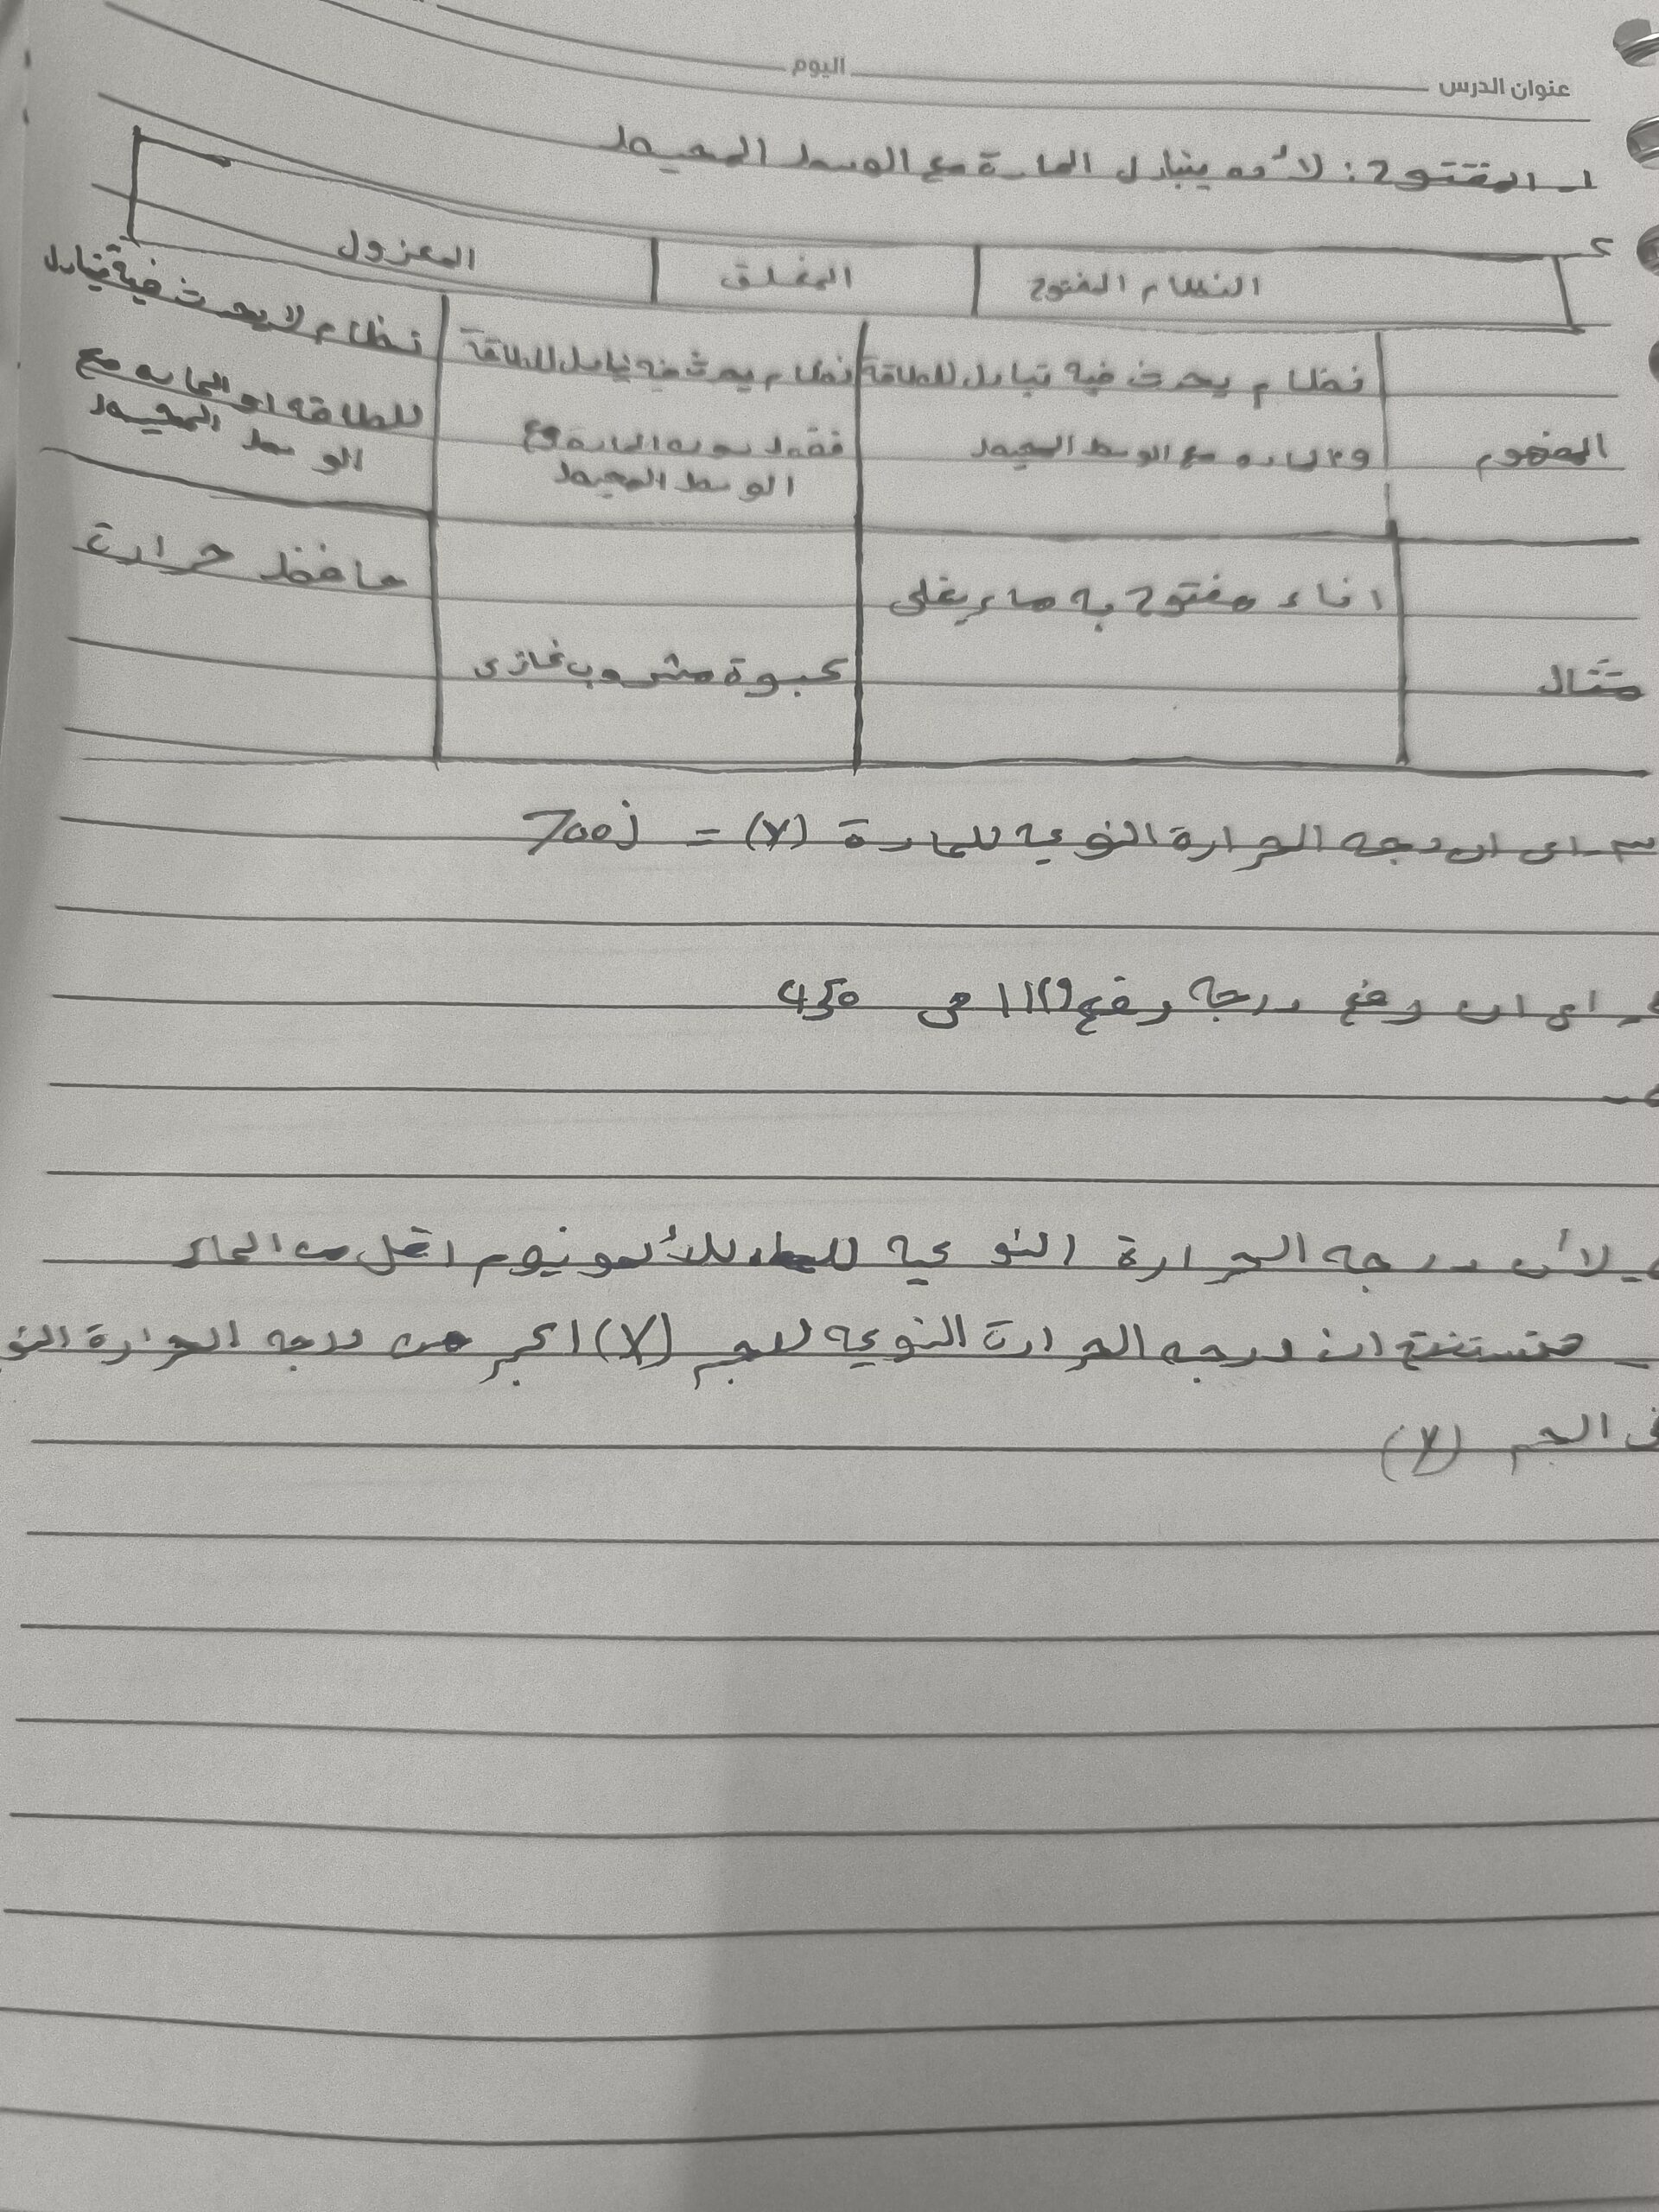 عنوان الدرس اليوم
١- المفتوح: لأنه يتبادل المادة مع الوسط المحيط
٢
النظام المفتوح المغلق المعزول
المفهوم
نظام يحدث فيه تبادل للطاقة
والماده مع الوسط المحيط
نظام يحدث فيه تبادل للطاقة
فقط دون المادة مع
الوسط المحيط
نظام لا يحدث فية تبادل
للطاقه او الماده مع
الوسط المحيط
مثال
اناء مفتوح به ماء يغلى
عبوة مشروب غازى
حافظ حرارة
٣- اى ان درجه الحرارة النوعيه للمادة (٧) = 700J
اى ان رفع درجه رفع هى
لأن درجه الحرارة النوعيه للألمونيوم اقل من الماء
- نستنتج ان درجه الحرارة النوعيه للجسم (X) اكبر من درجه الحرارة النو
فى الجسم (Y)